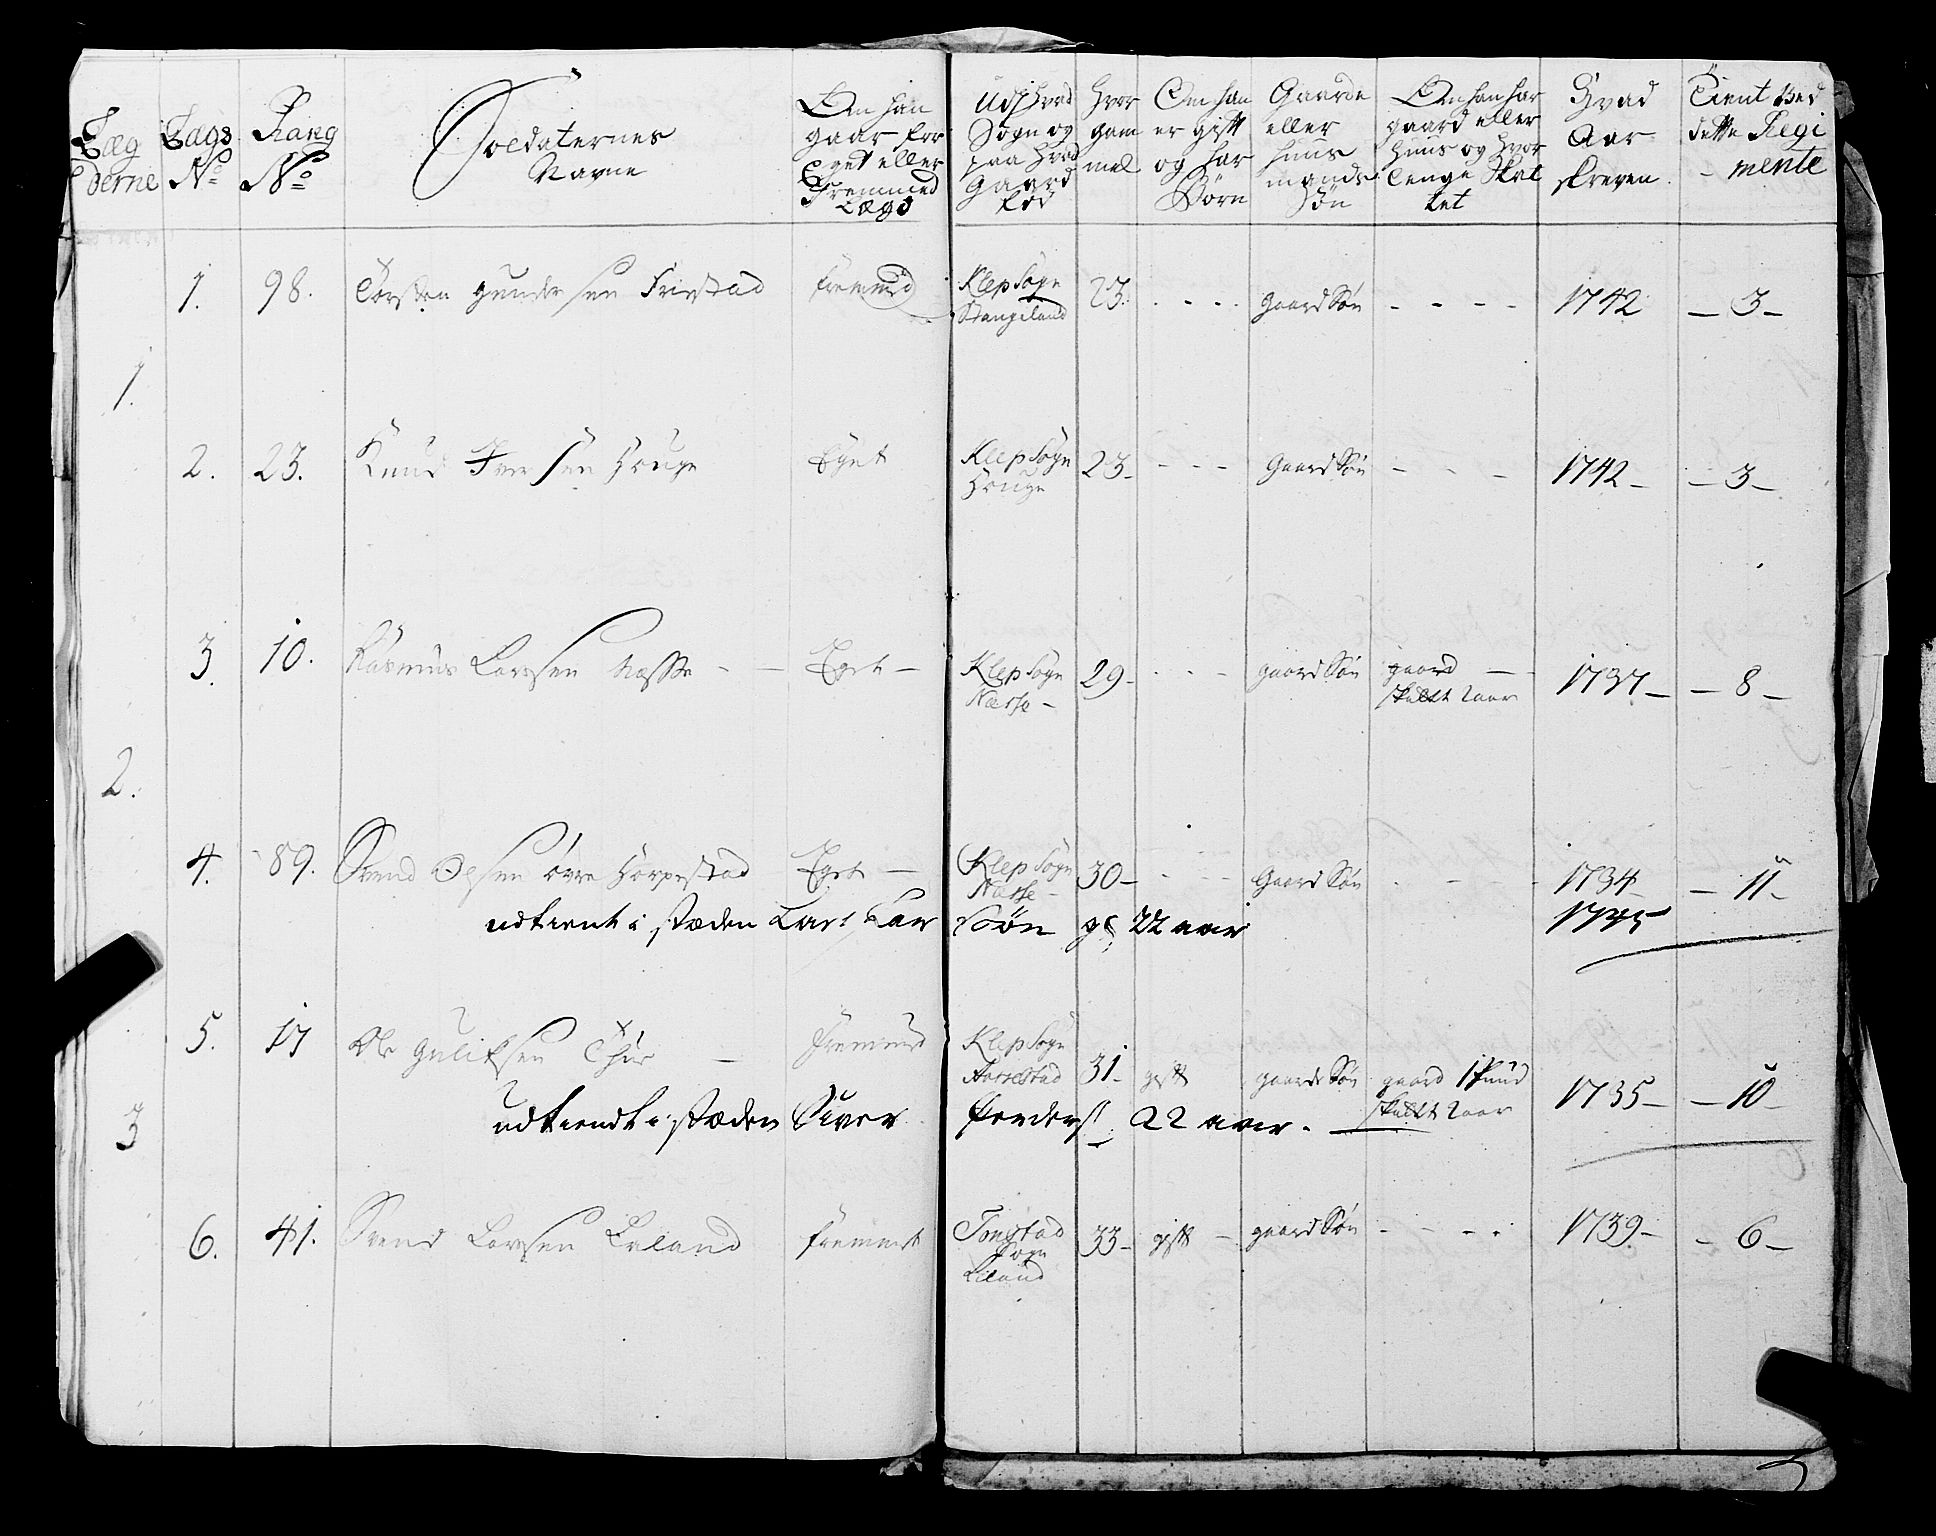 Læg
derne
Lægs
No
Rang
No
Soldaternes
Navne
Om han
gaar for
Eget eller
Fremmed
Lægs
Udi Hvad
Sogn og
paa Hvad
Gaard
fød
Hvor
gam
mel
Om han
er gift
og har
Børn
Gaarde
eller
Huus
mands
Søn
Om han har
gaard eller
Huus og Hvor
lenge Skat
tet
Hvad
Aar
skreven
Tient ved
dette Regi
mente
1.
1. 98. Torsten gundersen Fristad fremmed Klep Sogn
Stangeland 23. - - - gaard Søn - - - - 1742 - 3 -
2. 23. Knud Iversen Houge Eget Klep Sogn
Houge 23 - - - - Gaard Søn - - - 1742 - - 3 -
2.
3. 10. Rasmus Larsen Næsse - - Eget - Klep Sogn
Næsse - 29 - - - - gaard Søn gaard -
skatt 2 aar 1737 - - 8 -
4. 89. Svend Olsen øvre Horpestad Eget - Klep Sogn
Næsse - 30 - - - - Gaard Søn - - - 1734
1745 - 11 -
udtient i stæden Lars Lar Søn gl 22 aar
3
5. 17 Ole Guliksen Thu - Fremmed Klep Sogn
31 - gift gaards Søn gaard
skatt 2 aar 1735 - - 10 -
udtiendt i stæden Siver 22 aar. -
6. 41. Svend Larsen fremmet Tonstad
Sogn
Liland 33 - gift - gaard Søn - - - - 1739 - - 6 -